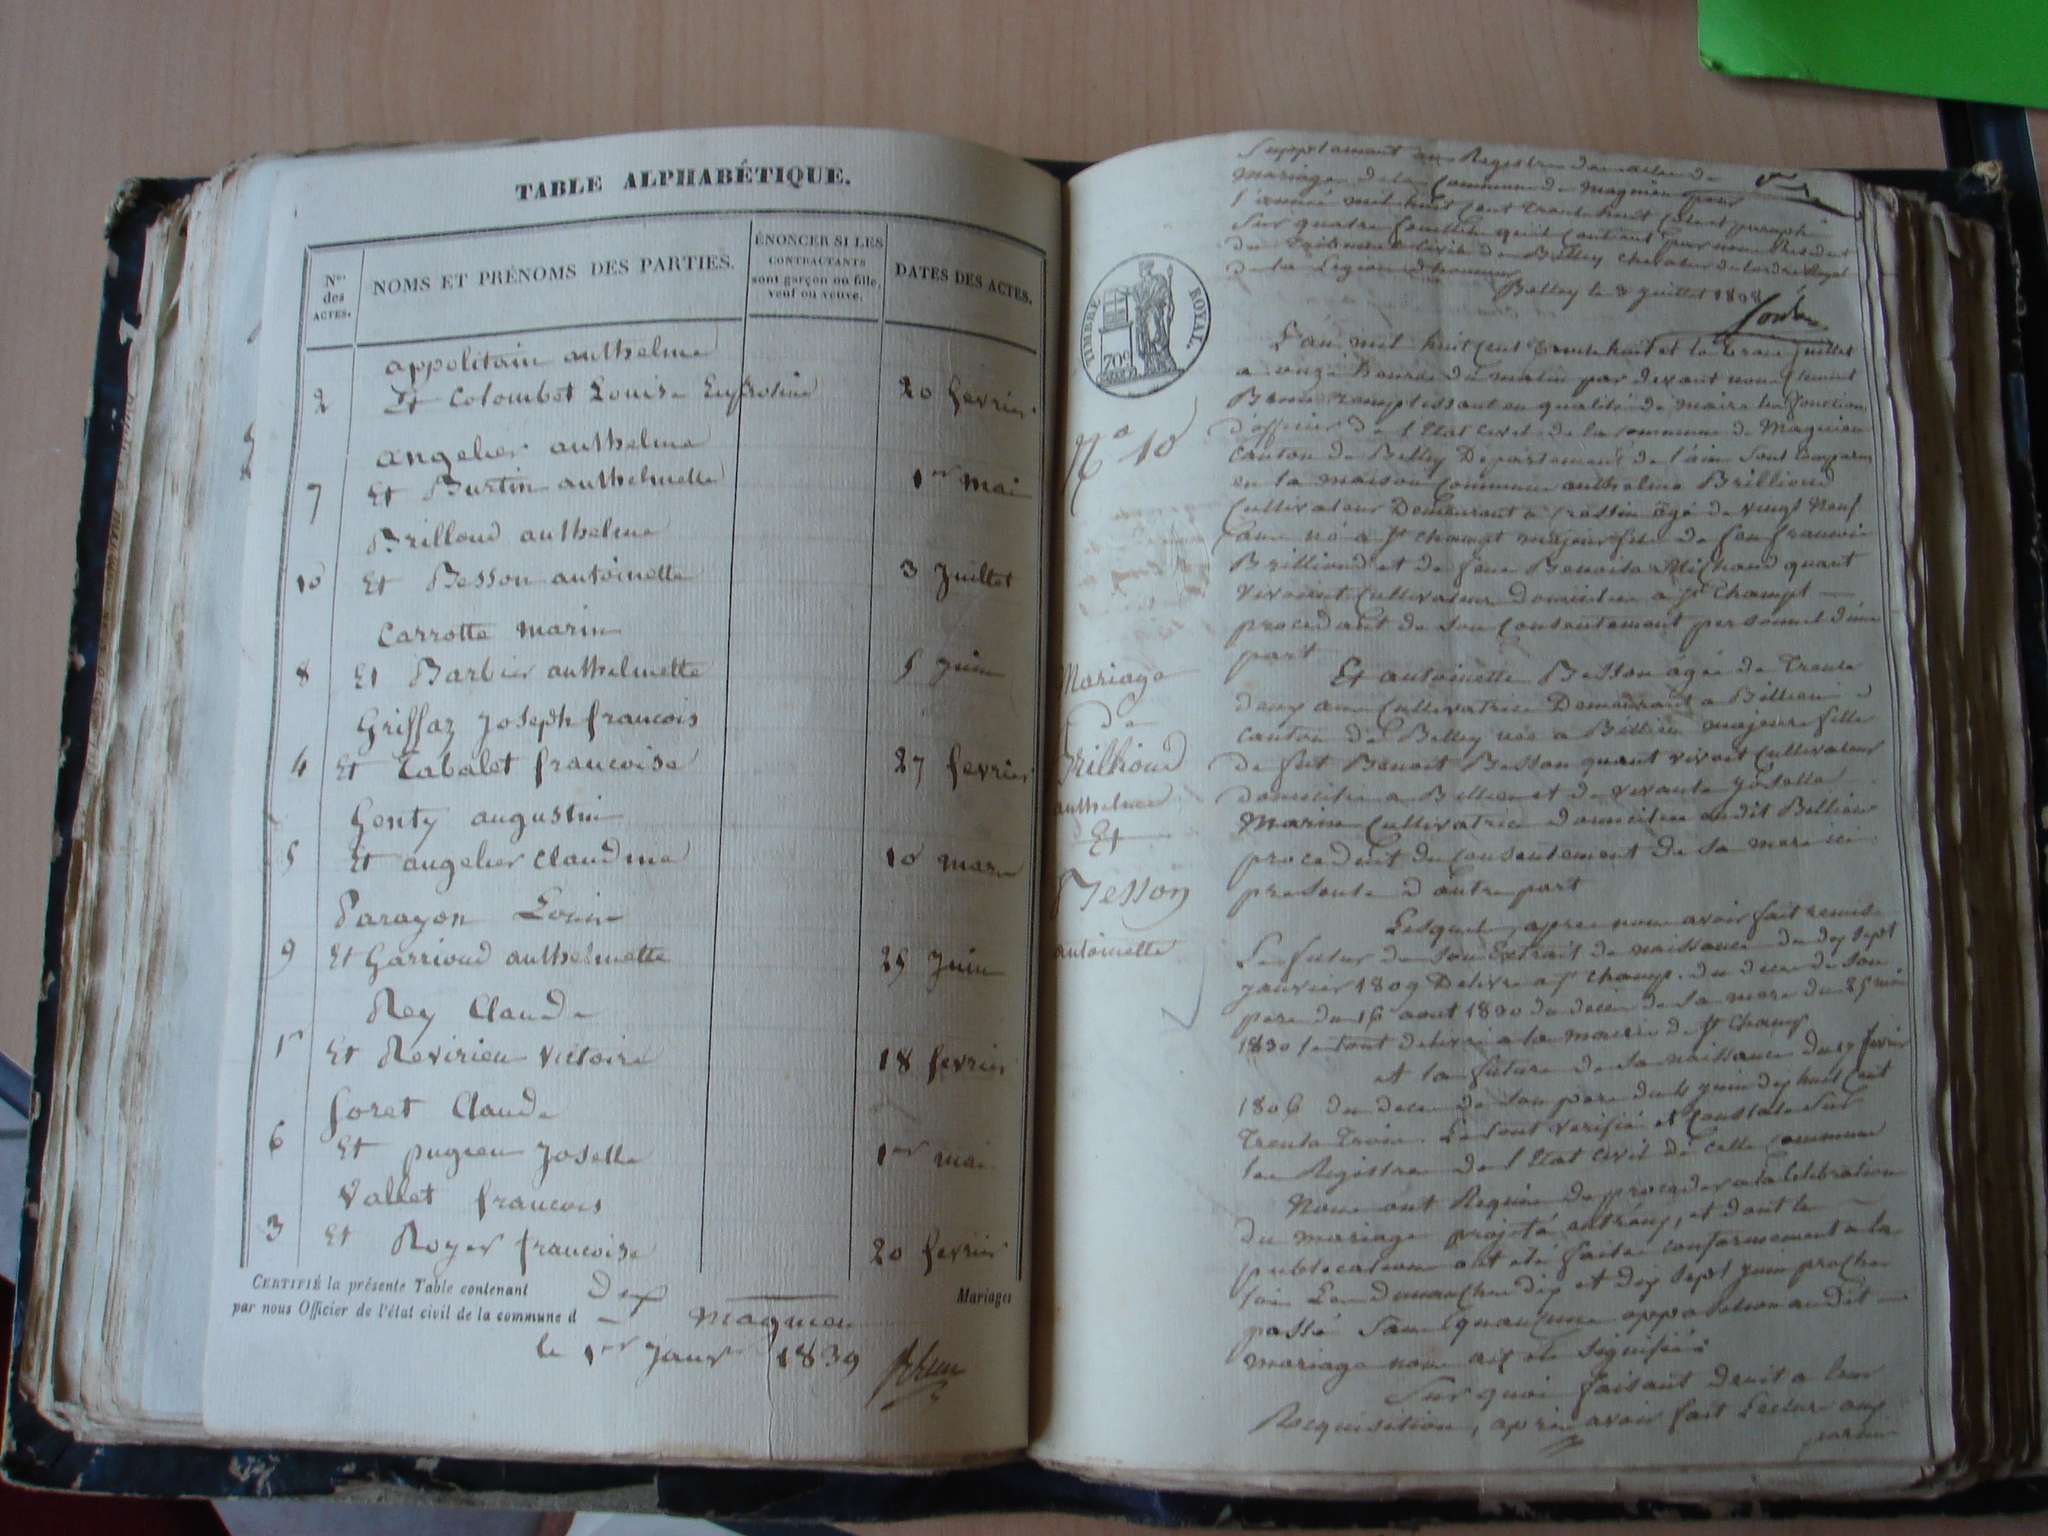 TABLE ALPHABÉTIQUE.
Nos des ACTES.
NOMS ET PRÉNOMS DES PARTIES.
ÉNONCER SI LES CONTRACTANTS sont garçon ou fille, veuf ou veuve.
DATES DES ACTES.
appolitain anthelme
2 Et Colombet Louise Eufrosine 20 fevrier
angelier anthelme
7 Et Burtin anthelmette 1er mai
Brilloud anthelme
10 Et Besson antoinette 3 Juillet
Carrotte marin
8 Et Barbier anthelmette 5 Juin
Griffaz Joseph francois
4 Et Tabalet francoise 27 fevrier
Genty augustin
5 Et angelier Claudine 10 mars
Paragon Louis
9 Et Garrioud anthelmette 25 Juin
Rey Claude
1r Et Revirieu Victoire 18 fevrier
Soret Claude
6 Et pugieu Josette 1er mai
Vallet francois
3 Et Royer francoise 20 fevrier
CERTIFIÉ la présente Table contenant dix Mariages
par nous Officier de l'état civil de la commune d magnieu
le 1er Janvr 1839
Supplement au Registre des actes de
mariage de la Commune de magnieu pour
l'année mil huit Cent trente huit
sur quatre feuillets par nous President
du tribunal Civil de Belley chevalier de l'ordre Royal
de la Legion d'honneur
Belley le 3 Juillet 1838
TIMBRE ROYAL.
70c
No 10
Mariage
de
Brillioud
anthelme
Et
Besson
antoinette
L'an mil huit Cent trente huit et le trois Juillet
a onze heures du matin par devant nous Clement
Brun remplissant en qualité de maire les fonctions
d'officier de l'Etat Civil de la commune de Magnieu
Canton de Belley Departement de l'ain Sont Comparus
en la maison Commune anthelme Brillioud
Cultivateur Demeurant a Cressin agé de vingt Neuf
ans né a St champt majeur fils de feu francois
Brillioud et de feue Benoite Michaud quant
vivaient Cultivateurs domiciliés a St Champt
procedant de son Consentement personnel d'une
part
Et antoinette Besson agée de Trente
deux ans Cultivatrice Demeurant a Billieu
canton de Belley née a Billieu majeure fille
de fut Benoit Besson quant vivoit Cultivateur
domicilié a Billieu et de vivante Josette
Marin Cultivatrice domiciliée audit Billieu
procedant du Consentement de sa mere ici
presente d'autre part
Lesquels apres nous avoir fait remise
Le futur de son Extrait de naissance du dix sept
Janvier 1809 Delivré a St Champ. du deces de son
pere du 15 aout 1830 du deces de sa mere du 25 mai
1830 le tout delivré a la mairie de St Champ
et la future de sa naissance du 17 fevrier
1806 du deces de son pere du 4 Juin dix huit Cent
trente trois. Le tout verifié et Constaté sur
les Registres de l'Etat Civil de cette commune
Nous ont Requis de proceder a la Celebration
du mariage projeté entr'eux, et dont les
publications ont été faites conformement a la
loi Les dimanches dix et dix sept Juin proches
passé sans qu'aucune opposition audit
mariage nous ait été signifiée
Sur quoi faisant droit a leur
Requisition, apres avoir fait Lecture aux
parties